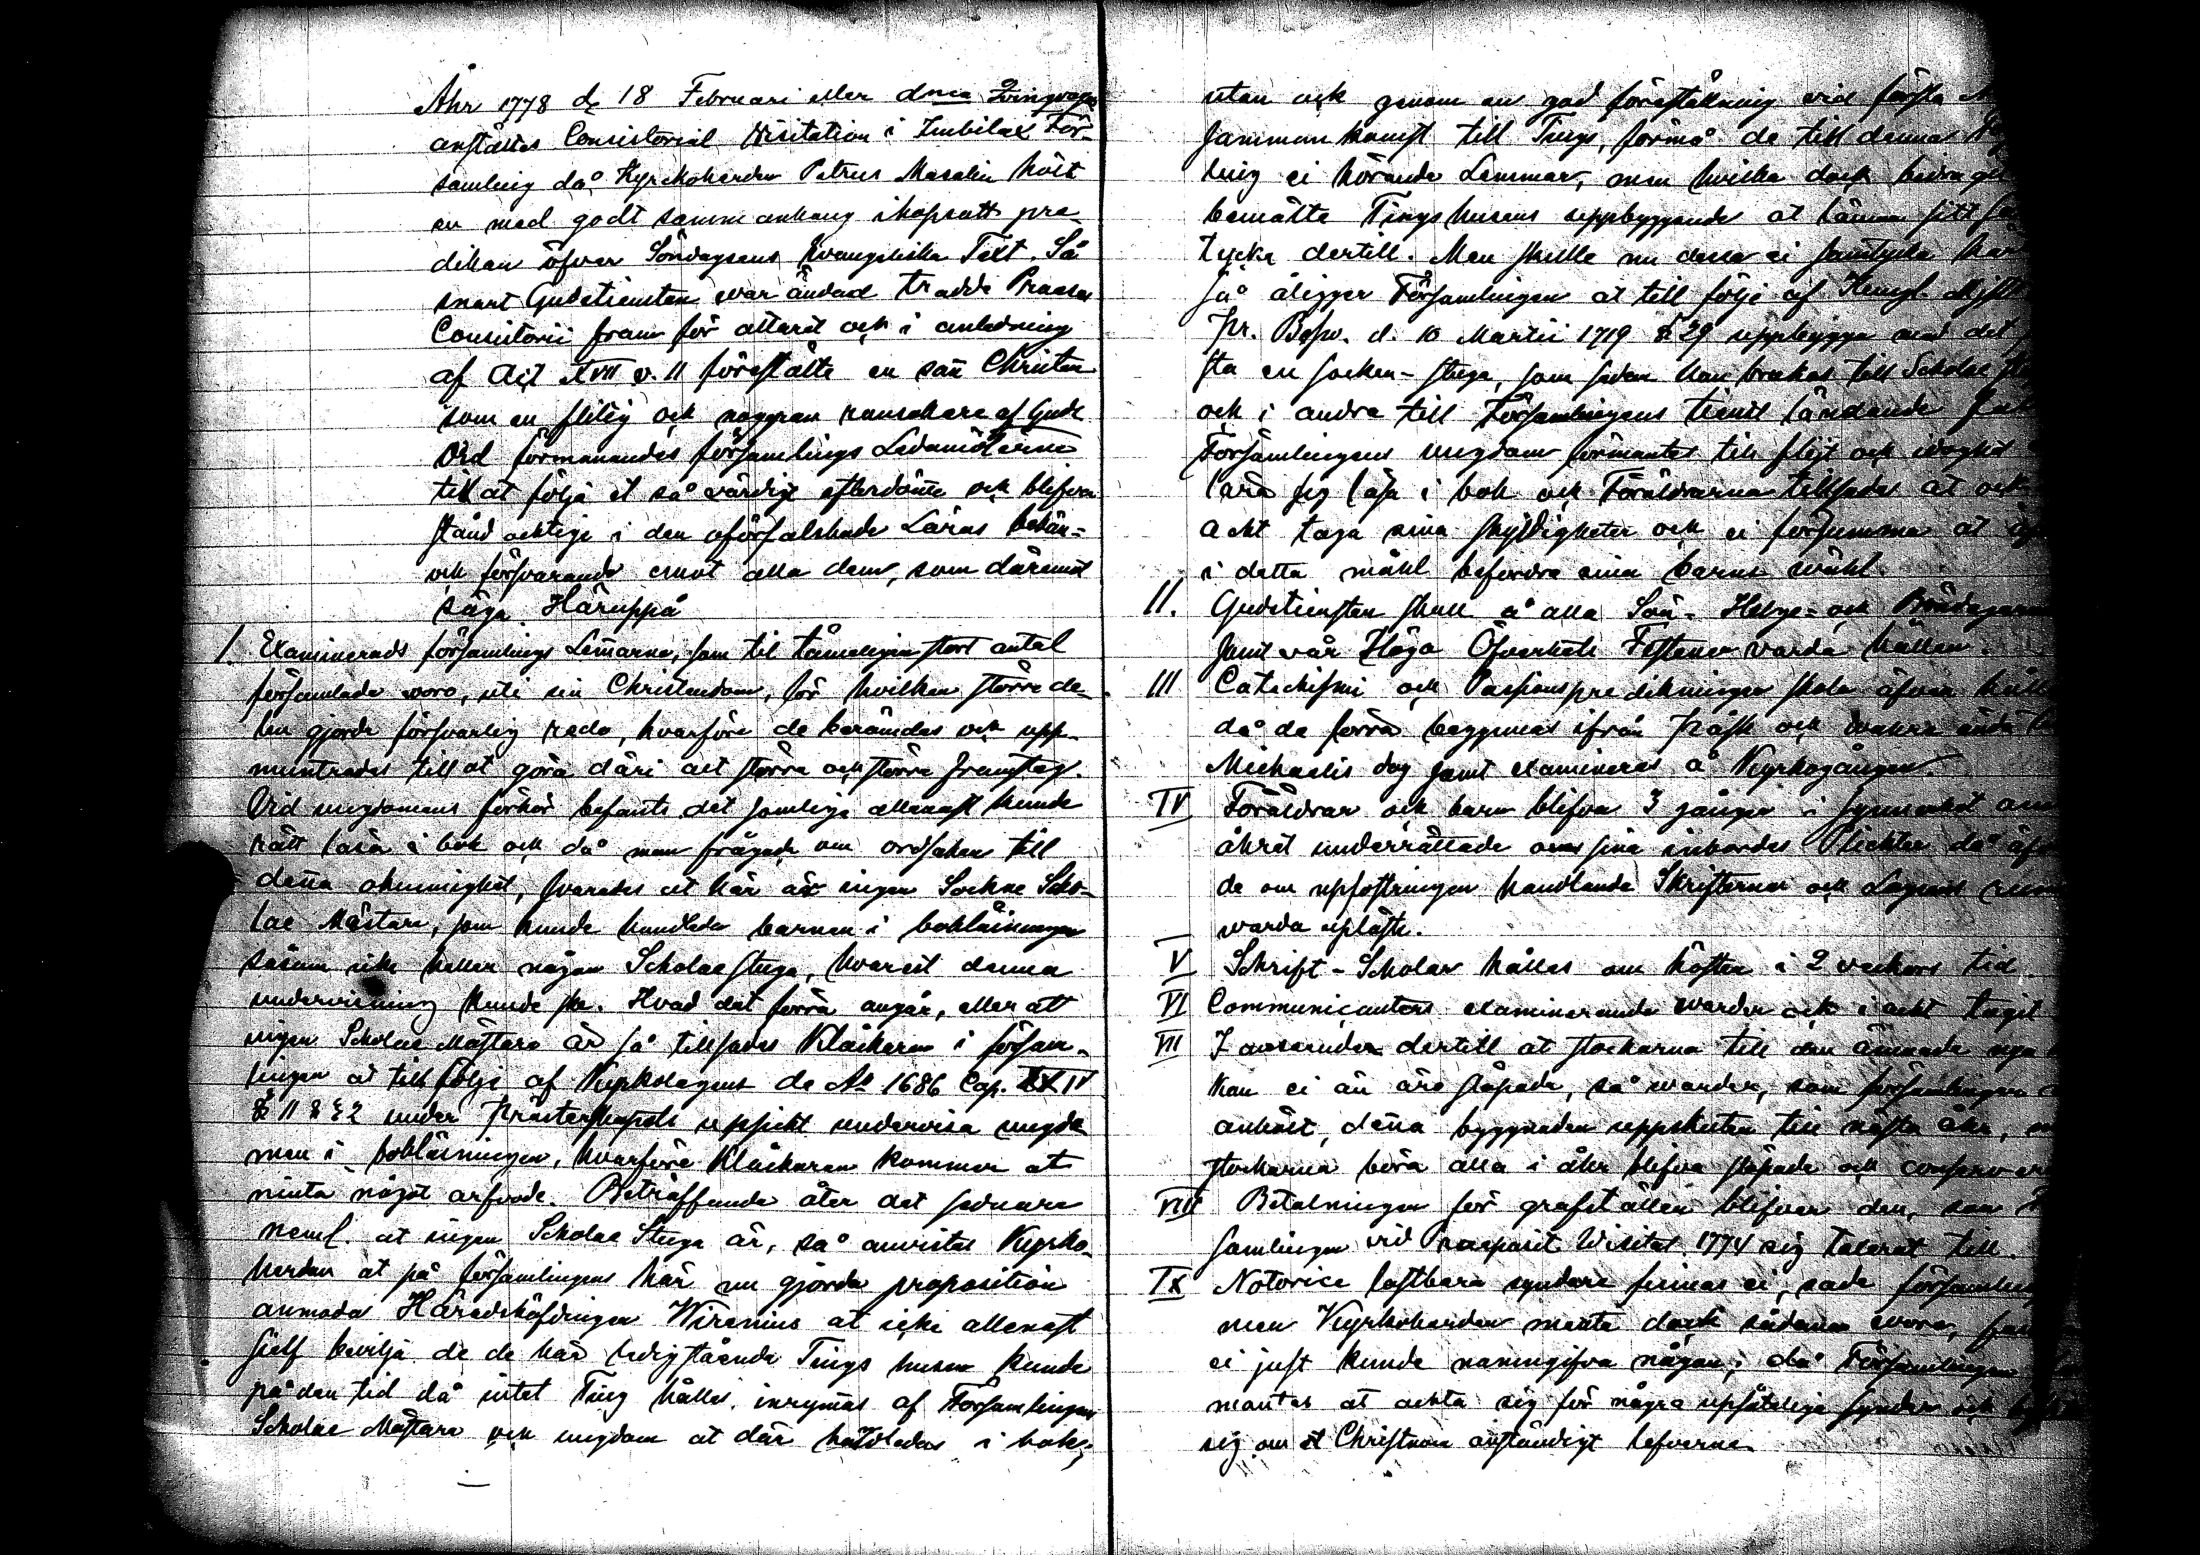 Åhr 1778 d. 18 Februari eller dnca
anstältes Consistorial Visitation i Imbilax För-
samling då Kyrckoherden Petrus Masalin hölt
en med godt sammanhang ihopsatt pre-
dikan öfver Söndagsens Evangeliska Text. Så
snart Gudstiensten war ändad trädde Praeses
Consistorii fram för altaret och i anledning
af Act XVII v. 11 förestälte en sañ Christen
som en flitig och noggran ransakare af Guds
Ord förmanandes församlings Ledamöterne
till at följa et så värdigt efterdöme och blifva
ståndachtige i den oförfalskade Läras bekän-
och försvarande emot alla dem, som däremot
säga. Häruppå
1. Examinerades församlings Lem̃arne, som til tämeligen stort antal
församlade woro, uti sin Christendom, för hvilken större de-
len gjorde försvarlig reda, hvarföre de berömdes och upp-
muntrades till at göra däri alt större och större framsteg.
Vid ungdomens förhör befants det somlige allenast kunde
rätt läsa i bok och då man frågade om orsaken till
deña okunnighet, svarades at här är ingen Sockne Scho-
lae Mästare, som kunde handleda barnen i bokläsningen
såsom icke heller någon Scholae stuga, hvarest denna
undervisning kunde ske. Hvad det förra angår, eller att
ingen Scholae Mästare är så tillsades Klåckaren i försam-
lingen at till följe af Kyrkolagens de Ao 1686 Cap. XXIV
§ 11 & § 2 under Prästerskapets uppsikt undervisa ungdo
men i bokläsningen, hvarföre Klåckaren kommer at
niuta något arfvode. Beträffande åter det sednare
neml. at ingen Scholae Stuga är, så anvistes Kyrko-
herden at på församlingens här nu gjorde proposition
anmoda Häradshöfdingen Wirenius at icke allenast
sielf bevilja de de här ledigstående Tings husen kunde
på den tid då intet Ting hålles, inrym̃as af Församlingens
Scholae Mästare och ungdom at där handledas i bok;
utan ock genom en god föreställning vid första
sammankomst till Tings, förmå de till denna
ling ei hörande Lemmar, men hvilka dock bidragit
bemälte Tingshusens uppbyggande at lämna sitt
tycke dertill. Men skulle nu desse ei samtycka här
så åligger Församlingen at till följe af Kongl.
Pr. Resol. d. 10 Martii 1719 § 29 uppbygga med det
sta en socken-stuga, som sedan kan brukas till Scholae
och i andra till Församlingens tienst ländande
Församlingens ungdom förmantes till flit och idoghet
lära sig läsa i bok och Föräldrarna tillsades at och
acht taga sina skyldigheter och ei försumma at
i detta måhl befordra sina barns wähl.
II. Gudstiensten skall å alla Sön- Helge- och Böndagarne
samt vår Höga Öfverhets Festener varda hållen.
III Catechismi och Passionspredikningar skola äfven
då de förra begynnas ifrån Påsk och wahra ända
Michaelis dag samt examineras å Kyrkogången.
IV Föräldrar och barn blifva 3 gånger i synnerhet om
åhret underrättade om sina inbördes Plichter då
de om upfostringen handlande Skrifterna och Lagens
warda upläste.
V Schrift-Scholar hålles om hösten i 2 veckors tid
VI Communicanters examinerande warder och i acht tagit
VII I anseende dertill at stockarna till den ämnade nya
kan ei än äro släpade, så warder, som församlingen
anhölt, deña byggnaden uppskuten till nästa åhr,
stockarna böra alla i åhr blifva släpade och
VIII Betalningen för grafställen blifver den, som
samlingen vid Visitat. 1774 sig tolerat till.
IX Notorice lastbara syndare finnas ei, sade församlingen
men Kyrkoherden mente dock sådane wore,
ei just kunde namngifva någon; då Församlingen
mantes at achta sig för några upsåtelige synder och
sig om et Christnom anständigt lefverne.